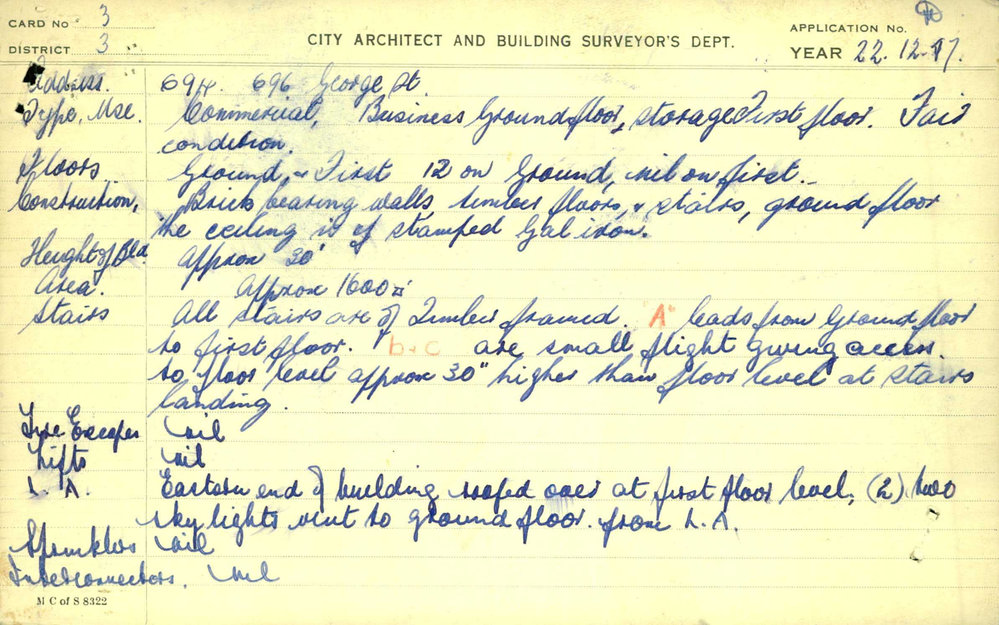 CARD No 3
DISTRICT 3
CITY ARCHITECT AND BUILDING SURVEYOR'S DEPT.
APPLICATION No.
YEAR 22.12.47.
Address. 694. 696 George St.
Type, Use. Commercial, Business Ground floor, storage First floor. Fair
condition.
Floors Ground, & First 12 on Ground, nil on first.
Construction, Brick bearing walls timber floors, & stairs, ground floor
the ceiling is of stamped Gal iron.
Height of Bld. Approx 30'
Area. Approx 1600 □'
Stairs All stairs are of Timber framed. "A" leads from Ground floor
to first floor. b + c are small flight giving access.
to floor level approx 30" higher than floor level at stairs
landing.
Fire Escapes nil
Lifts nil
L. A. Eastern end of building roofed over at first floor level, (2) two
sky lights vent to ground floor. from L.A.
Sprinklers nil
Interconnectors. nil
M C of S 8322